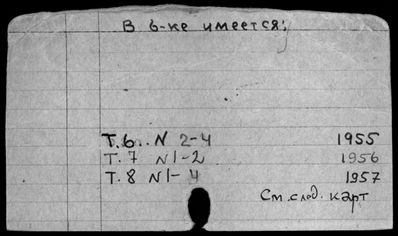 В б-ке имеется;
Т. 6.. N 2-4 1955
Т. 7 N 1-2 1956
Т. 8 N 1-4 1957
См. след. карт